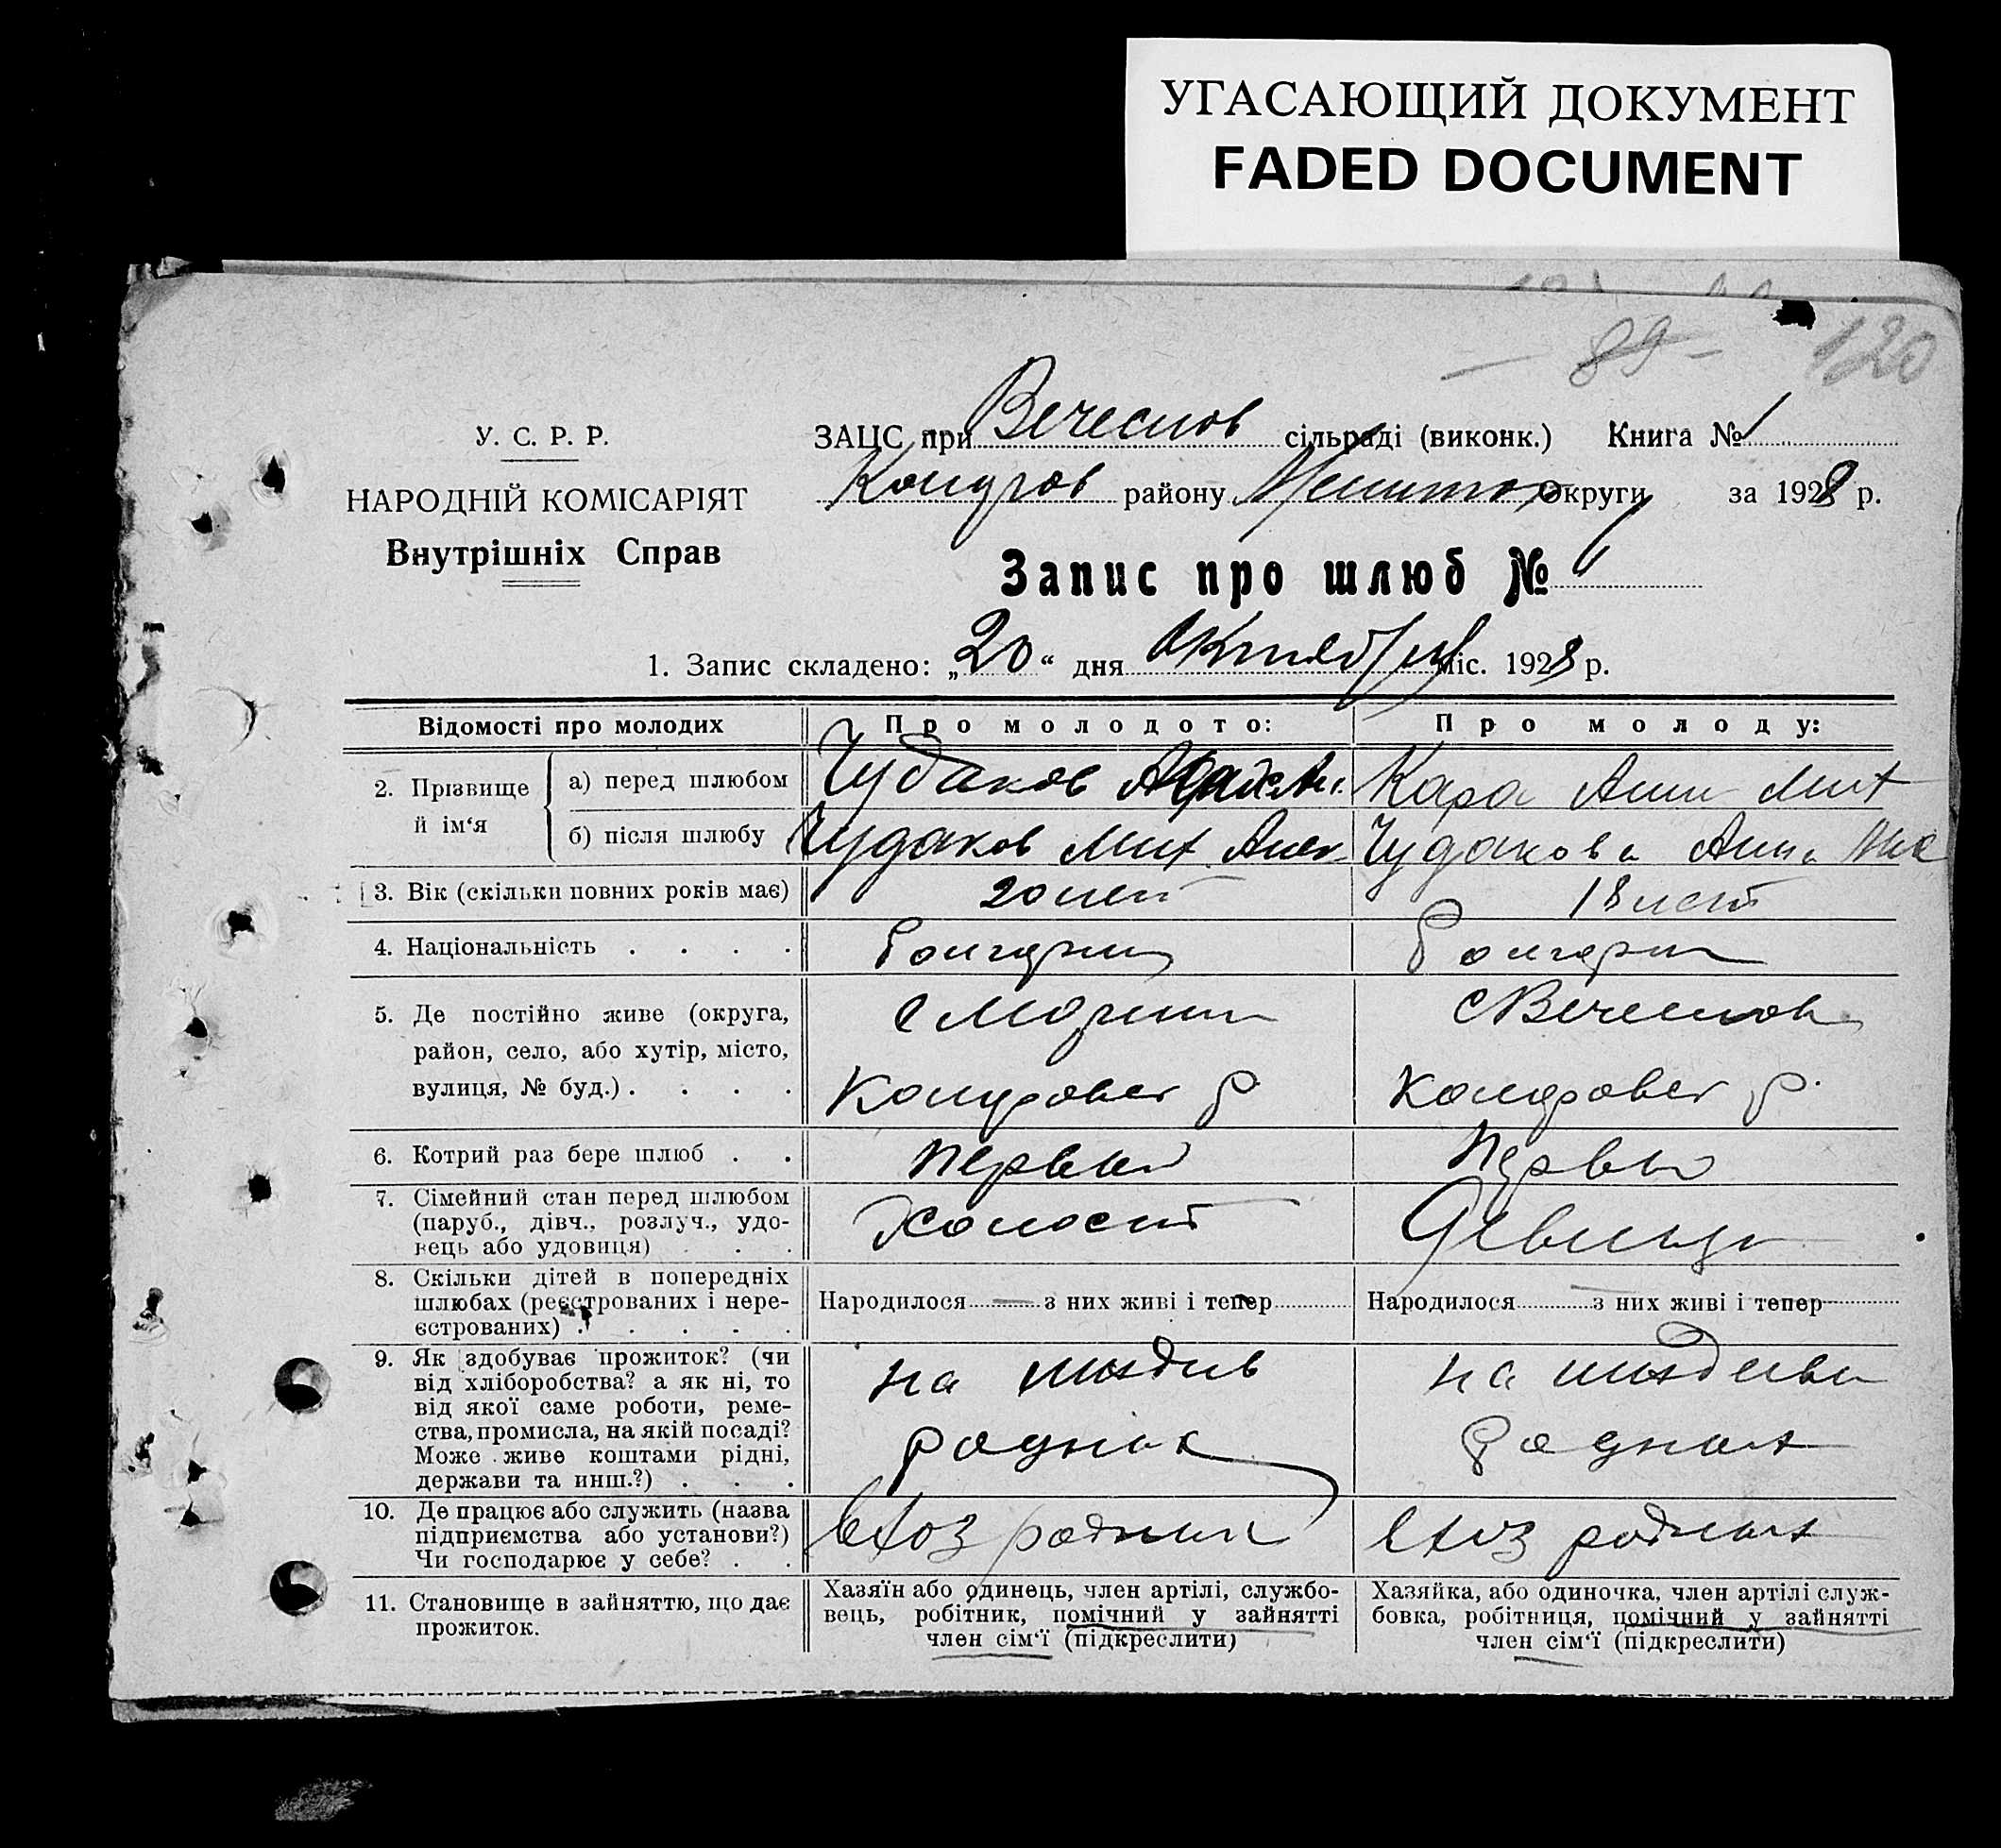 УГАСАЮЩИЙ ДОКУМЕНТ
FADED DOCUMENT
89 120
У. С. Р. Р.
НАРОДНІЙ КОМІСАРІЯТ
Внутрішніх Справ
ЗАЦС при Вечеслов сільраді (виконк.) Книга № 1
району округи за 1928 р.
Запис про шлюб №
1. Запис складено: „20“ дня Октября міс. 1928 р.
Відомості про молодих
Про молодого:
Про молоду:
2. Прізвище й ім‘я
а) перед шлюбом
Чудаков
Кара Анна Мих
б) після шлюбу
Чудаков Мих. Алек
Чудакова Анна Мих
3. Вік (скільки повних років має)
20 лет
18 лет
4. Національність . . . .
Болгарин
Болгарка
5. Де постійно живе (округа,
район, село, або хутір, місто,
вулиця, № буд.) . . . .
с
р.
с Вечеслов
р.
6. Котрий раз бере шлюб . .
первый
первый
7. Сімейний стан перед шлюбом
(паруб., дівч., розлуч., удо-
вець або удовиця) . . .
Холост
Девица
8. Скільки дітей в попередніх
шлюбах (реєстрованих і нере-
єстрованих) . . . . .
Народилося — з них живі і тепер
Народилося з них живі і тепер
9. Як здобуває прожиток? (чи
від хліборобства? а як ні, то
від якої саме роботи, реме-
ства, промисла, на якій посаді?
Може живе коштами рідні,
держави та инш.?) . . .
на иждив
родных
на иждиве
родных
10. Де працює або служить (назва
підприємства або установи?)
Чи господарює у себе? . .
в хоз родных
в хоз родных
11. Становище в зайняттю, що дає
прожиток.
Хазяїн або одинець, член артілі, службо-
вець, робітник, помічний у зайнятті
член сім‘ї (підкреслити)
Хазяйка, або одиночка, член артілі служ-
бовка, робітниця, помічний у зайнятті
член сім‘ї (підкреслити)